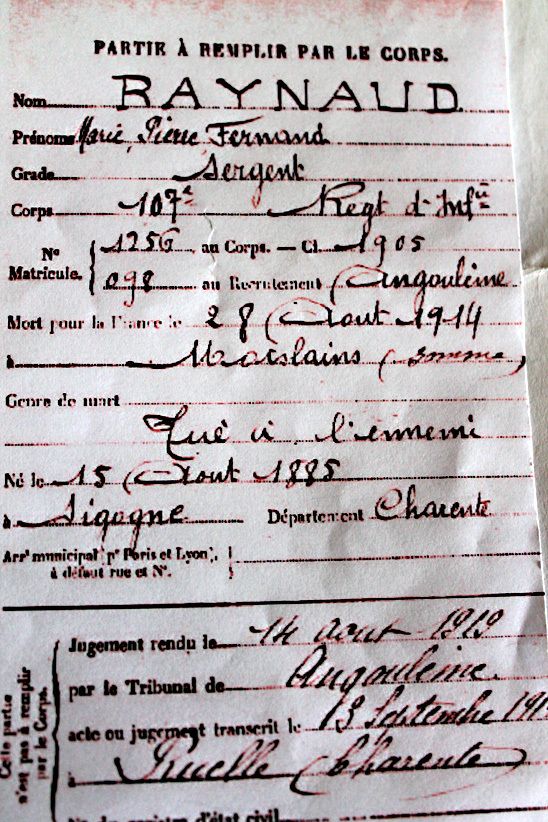 PARTIE À REMPLIR PAR LE CORPS.
Nom RAYNAUD
Prénoms Marie, Pierre Fernand
Grade Sergent
Corps 107e Régt d'Infie
Nº Matricule. 1256 au Corps. — Cl. 1905
098 au Recrutement Angoulême
Mort pour la France le 28 Aout 1914
à Moislains (Somme)
Genre de mort
Tué à l'ennemi
Né le 15 Aout 1885
à Sigogne Département Charente
Arrt municipal (pr Paris et Lyon),
à défaut rue et Nº.
Cette partie n'est pas à remplir par le Corps.
Jugement rendu le 14 aout 1919
par le Tribunal de Angoulême.
acte ou jugement transcrit le 13 Septembre
à Ruelle (Charente)
Nº du registre d'état civil